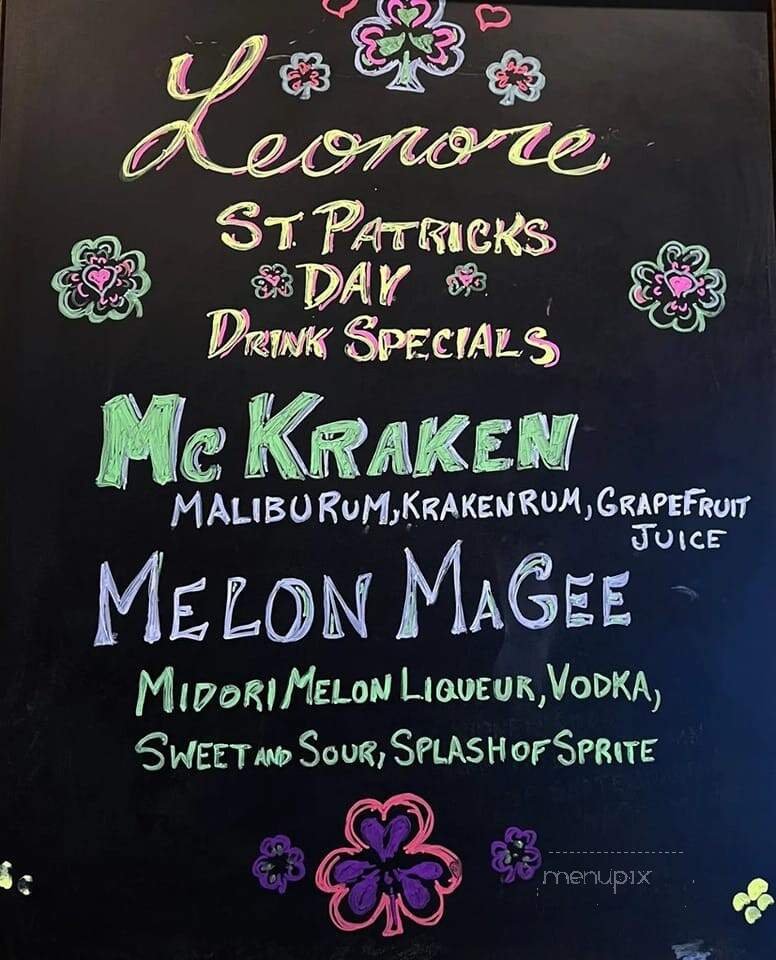 Leonore
ST. PATRICKS
DAY
DRINK SPECIALS
MC KRAKEN
MALIBU RUM, KRAKEN RUM, GRAPEFRUIT
JUICE
MELON MAGEE
MIDORI MELON LIQUEUR, VODKA,
SWEET AND SOUR, SPLASH OF SPRITE
menupix